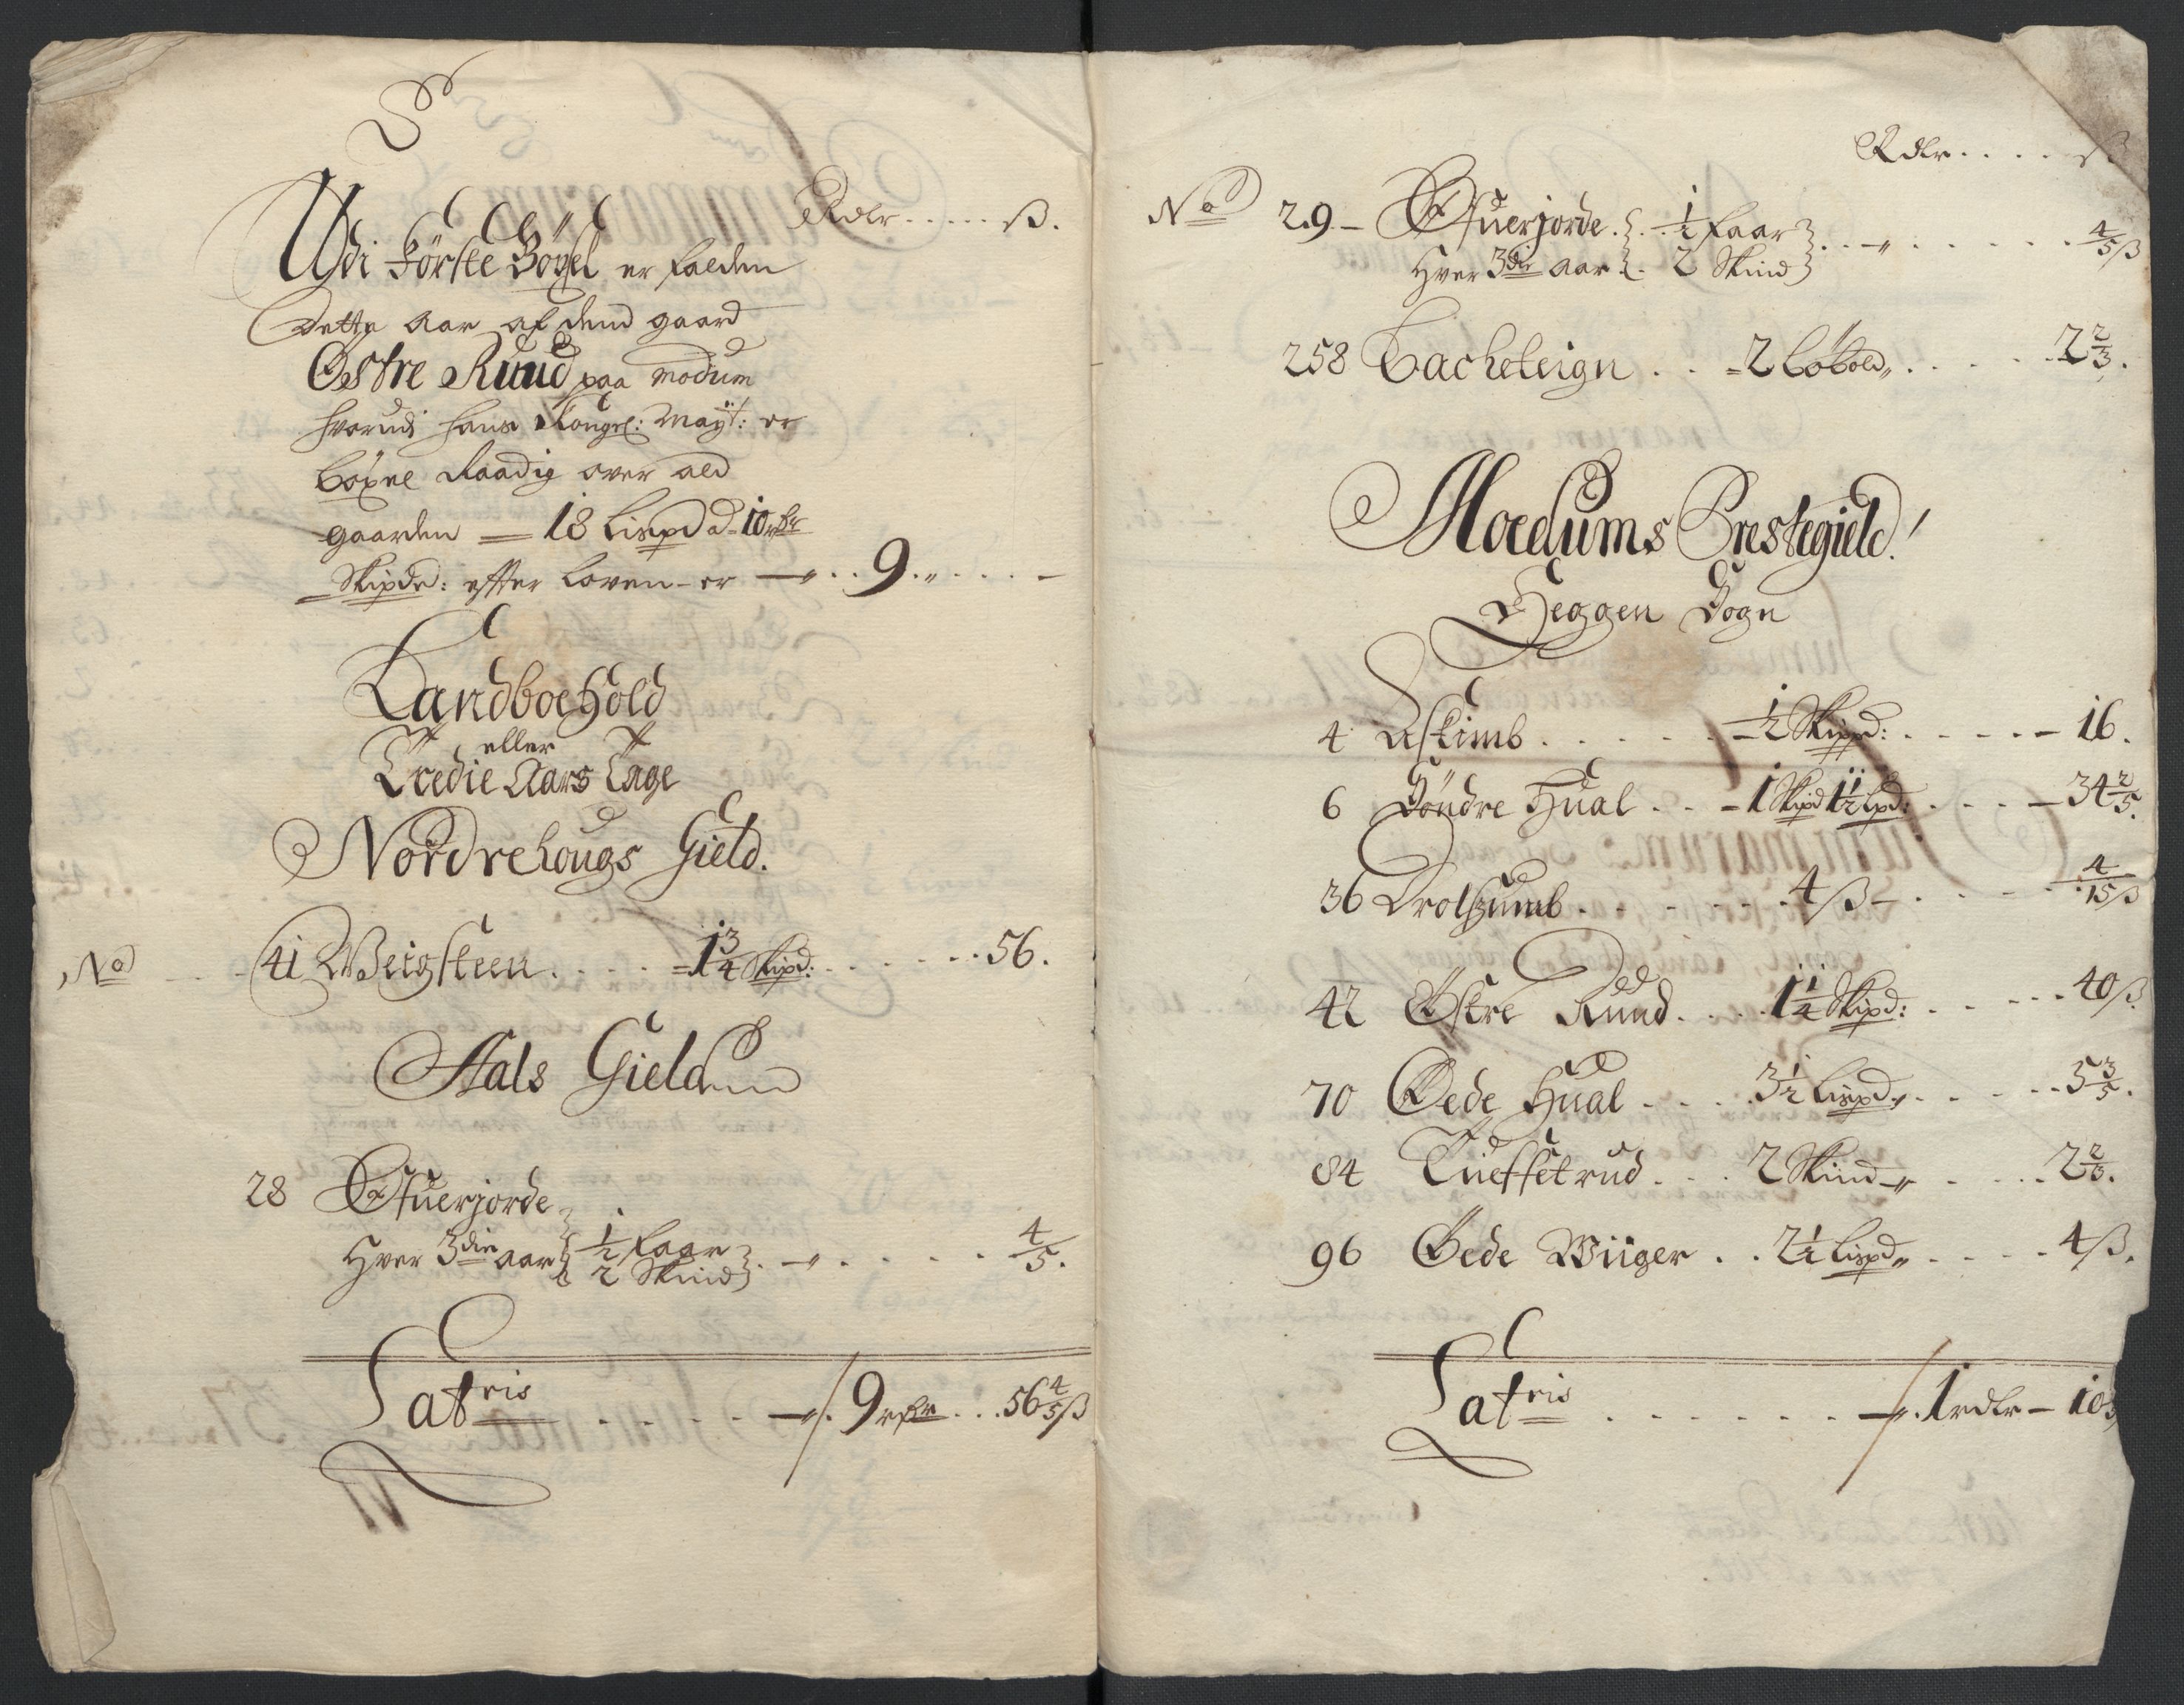 Rdlr ..... ß.
Udi Förste Böxel er falden
dette aar af dend gaard
Østre Ruud paa Modum
hvorudi hans Kongel: Mayt: er
böxel Raadig over ald
gaarden — 18 Lispd a 10 rdlr
Skipdt: effter loven er —„.. 9.„....-
Landboehold
eller
Tredie Aars Tage
Nordrehougs Gield.
No .. 41 Weigsteen ..... 1¾ Skipd: ...... 56.
Aals Gield
28 Ofuerjorde
Hver 3die aar { ½ faar
2 Skind } . —„ ..... 4/5.
Latris ..... —„. 9 rdlr ... 56 4/5 ß
Rdlr .... ß
No 29 - Ofuerjorde . { . ½ faar
Hver 3die aar { . 2 Skind } .. —„ ...... 4/5 ß
258 Bacheteign ... 2 ...... 2 2/3.
Moedums Prestegield!
Heggen Sogn
4 Askimb ...... ½ Skippd: ...... 16.
6 Söndre Hual ... 1 Skipd 1½ Lpd: .... 34 2/5.
36 Drolszumb ...... 4 ß ..... 4/15 ß
42 Østre Ruud .... 1¼ Skipd: ..... 40 ß
70 Øede Hual .... 3½ Lispd„ ...... 5 3/5.
84 Tueffetrud ... 2 Skind —„ ..... 2 2/3.
96 Øede Wiiger .. 2½ Lispd„ ..... 4 ß.
Latris ....... —„. 1 rdlr — 10